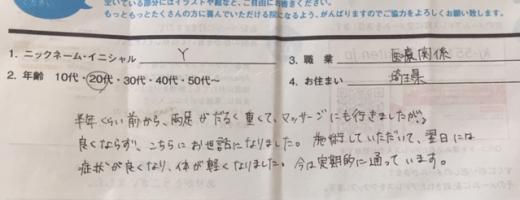 空いている部分にはイラストや絵など、ご自由にお書きください。
もっともっとたくさんの方に喜んでいただける院になるよう、がんばりますのでご協力をよろしくお願い致します。
1. ニックネーム・イニシャル Y
3. 職 業 医療関係
2. 年齢 10代・20代・30代・40代・50代〜
4. お住まい 埼玉県
半年くらい前から、両足がだるく重くて、マッサージにも行きましたが、
良くならず、こちらにお世話になりました。施術していただいて、翌日には
症状が良くなり、体が軽くなりました。今は定期的に通っています。